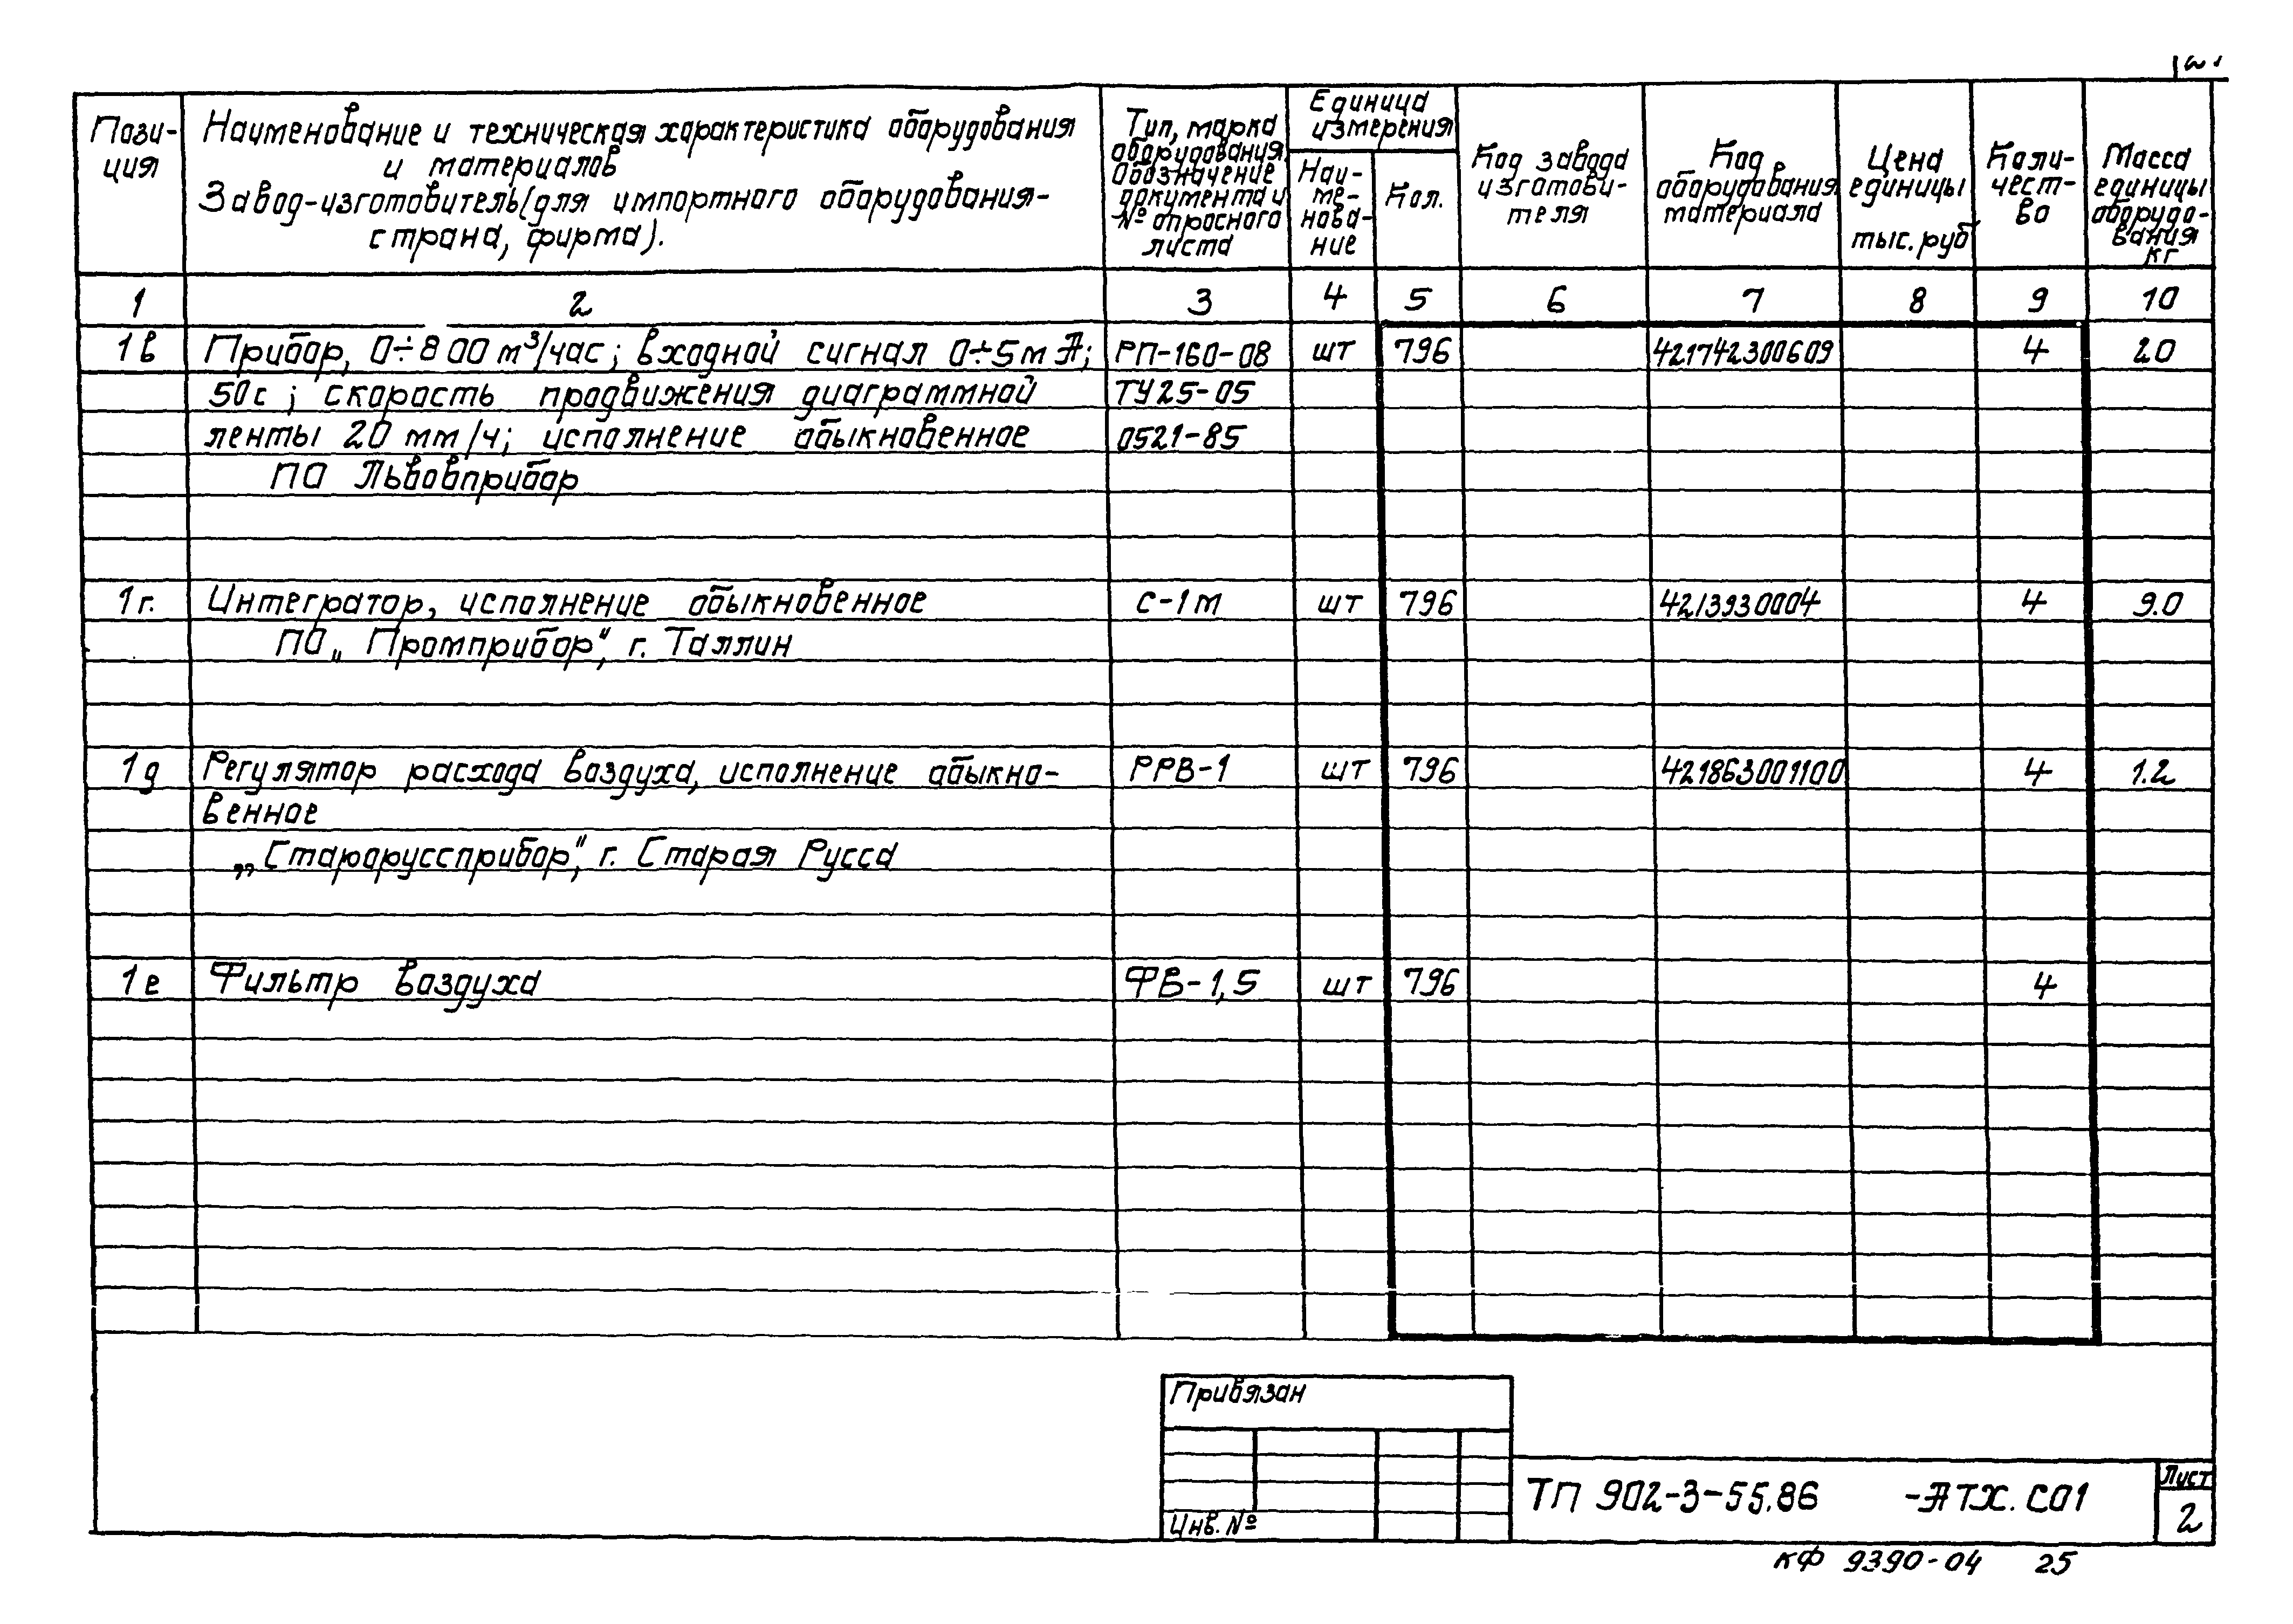 Пози-
ция
Наименование и техническая характеристика оборудования
и материалов
Завод-изготовитель (для импортного оборудования-
страна, фирма).
Тип, марка
оборудования.
Обозначение
документа и
№ опросного
листа
Единица
измерения
Наи-
ме-
нова-
ние
Кол.
Код завода
изготови-
теля
Код
оборудования
материала
Цена
единицы
тыс. руб
Коли-
чест-
во
Масса
единицы
оборудо-
вания
кг
1 2 3 4 5 6 7 8 9 10
1в Прибор, 0÷800 м³/час; входной сигнал 0÷5мА; РП-160-08 шт 796 421742300609 4 20
50с; скорость продвижения диаграммной ТУ25-05
ленты 20 мм/ч; исполнение обыкновенное 0521-85
ПО Львовприбор
1г. Интегратор, исполнение обыкновенное С-1М шт 796 4213930004 4 9.0
ПО „Промприбор", г. Таллин
1д Регулятор расхода воздуха, исполнение обыкно- РРВ-1 шт 796 421863001100 4 1.2
венное
„Старорусприбор", г. Старая Русса
1е Фильтр воздуха ФВ-1,5 шт 796 4
Привязан
Инв. №
ТП 902-3-55.86 -АТХ.СО1
Лист
2
КФ 9390-04 25